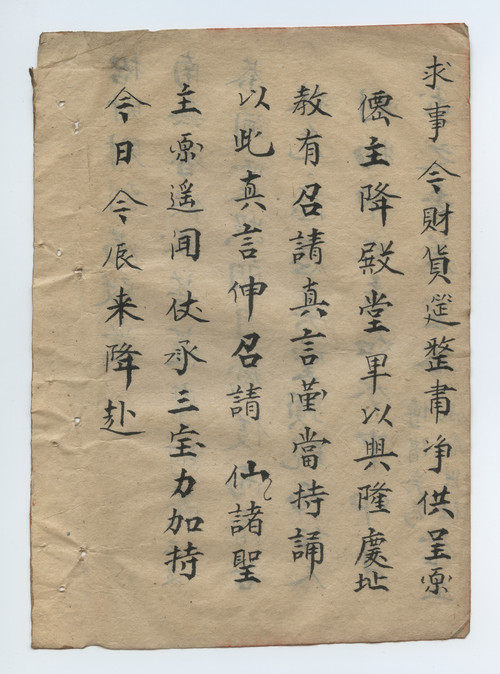 求事今財貨筵整肅净供呈愿
僊主降殿堂畢以興隆慶
教有召請真言謹當持誦
以此真言伸召請仙諸聖
主愿遥闻仗承三宝力加持
今日今辰来降赴